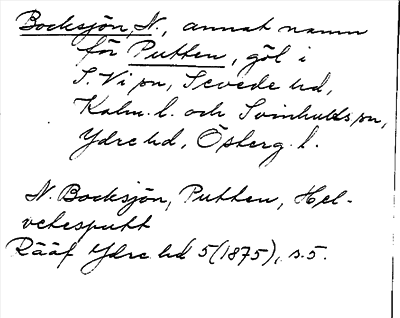 Bocksjön, N., annat namn
för Putten, göl i
S. Vi sn, Sevede hd,
Kalm. l. och Svinhults sn,
Ydre hd, Österg. l.
N. Bocksjön, Putten, Hel-
vetesputt
Rääf Ydre hd 5(1875), s. 5.